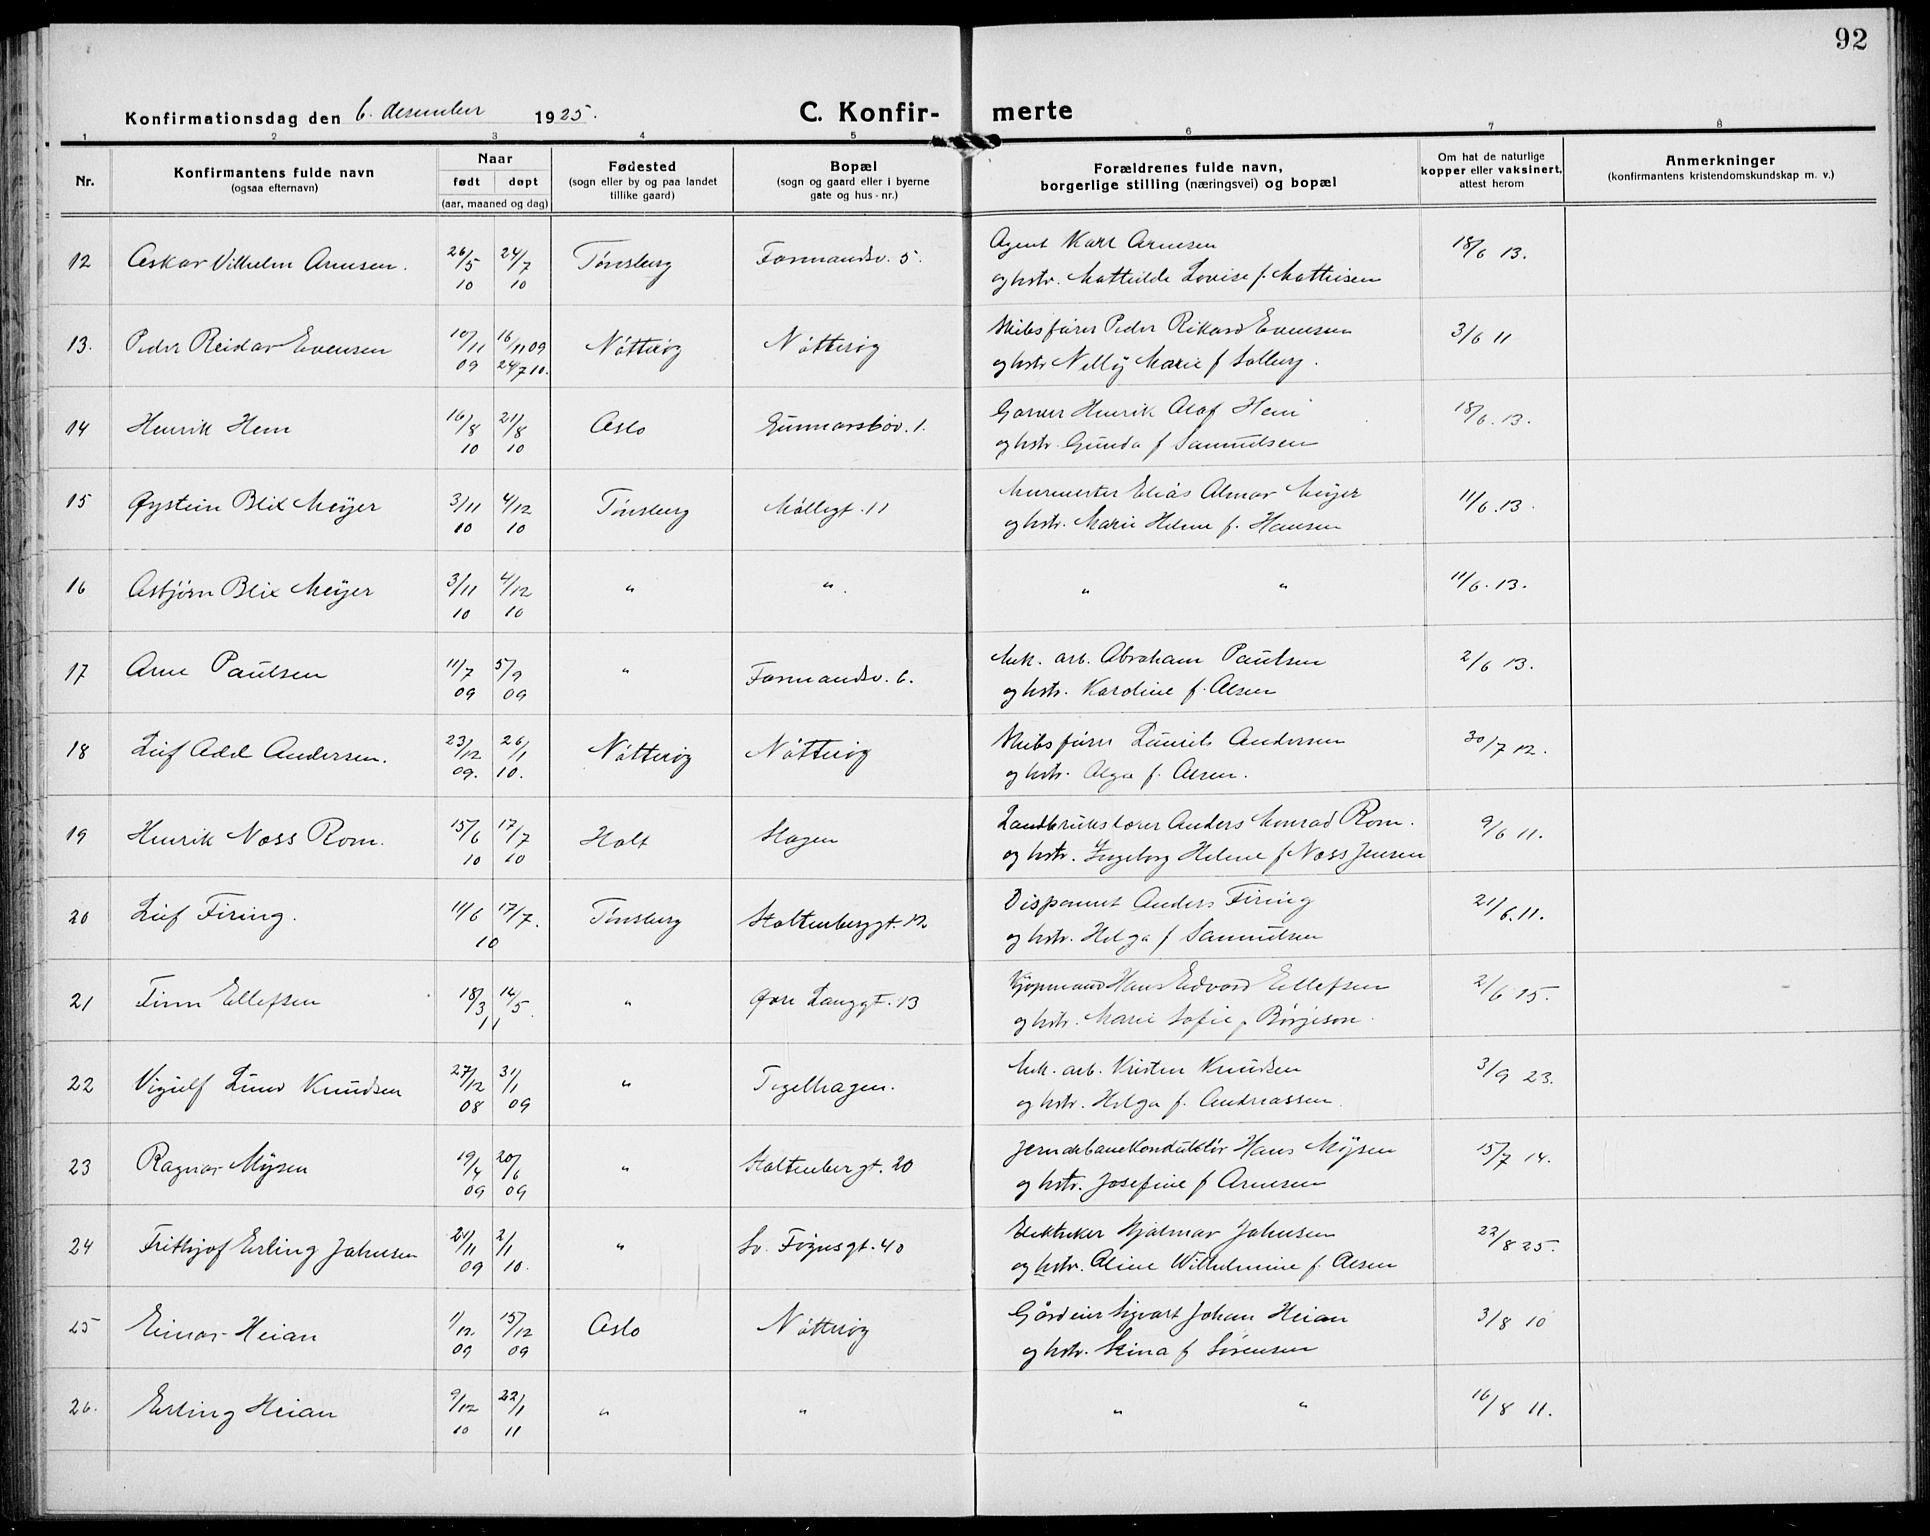 92
Konfirmationsdag den 6. desember 1925.
C. Konfir- merte
1 2 3 4 5 6 7 8
Nr.
Konfirmantens fulde navn
(ogsaa efternavn)
Naar
født døpt
(aar, maaned og dag)
Fødested
(sogn eller by og paa landet
tillike gaard)
Bopæl
(sogn og gaard eller i byerne
gate og hus-nr.)
Forældrenes fulde navn,
borgerlige stilling (næringsvei) og bopæl
Om hat de naturlige
kopper eller vaksinert,
attest herom
Anmerkninger
(konfirmantens kristendomskundskap m. v.)
12 Oskar Vilhelm Arnesen. 26/5 10 24/7 10 Tønsberg Formandsv. 5. Agent Karl Arnesen 18/6 13.
og hstr. Mathilde Lovise f. Mathisen
13. Peder Reidar Evensen 10/11 09 16/11 09 24/7 10. Nøtterøy Nøtterøy Skibsfører Peder Rikard Evensen 3/6 11
og hstr Nelly Marie f Solberg.
14 Henrik Hem 16/8 10 21/8 10 Oslo Gunnarsbøv. 1. Garver Henrik Olaf Hem 18/6. 13.
og hstr. Gunda f Samuelsen
15 Øystein Blix Meyer 3/11 10 4/12 10 Tønsberg Møllegt. 11 Murmester Elias Almar Meyer 11/6. 13.
og hstr. Marie Helene f. Hansen
16 Asbjørn Blix Meyer 3/11 10 4/12 10 " " . " " 11/6. 13.
17 Arne Paulsen 11/7 09 5/9 09 " Formandsv. 6. Mek. arb. Abraham Paulsen 2/6 13.
og hstr. Karoline f. Olsen
18 Leif Odd Andersen. 23/12 09. 26/1 10. Nøtterøy Nøtterøy Skibsfører Laurits Andersen 30/7 12.
og hstr. Olga f. Olsen.
19 Henrik Næss Rom. 15/6 10 17/7 10 Holt Slagen Landbrukslærer Anders Monrad Rom. 9/6 11.
og hstr. Ingeborg Helene f Næss Jensen
20 Leif Firing. 11/6 17/7. 10 Tønsberg Stoltenberggt. 12 Disponent Anders Firing 21/6. 11.
og hstr. Helga f Samuelsen
21 Finn Ellefsen 18/3 14/5. 11 " Øvre Langgt. 13 Kjøpmand Hans Edvard Ellefsen 2/6 15.
og hstr. Marie Sofie f Børjeson.
22 Vigulf Lund Knudsen 27/12 08 31/1 09 " Teglhagen. Mek. arb. Kristen Knudsen 3/9 23.
og hstr. Helga f. Andreassen.
23 Ragnar Mysen 19/4 09 20/6 09 " Stoltenbergt. 20 Jernebanekonduktør Hans Mysen 15/7 14.
og hstr. Josefine f Arnesen
24 Frithjof Erling Johnsen 21/11 09 2/1 10. " Sv. Føynsgt. 40 Elektriker Hjalmar Johnsen 22/8 25.
og hstr. Aline Wilhelmine f. Olsen
25 Einar Heian 1/12. 09 15/12 09 Oslo Nøtterøy Gårdeier Sigvart Johan Heian 3/8 10
og hstr. Stina f Sørensen
26. Erling Heian 9/12 10 22/1 11 " " " " 16/8 11.